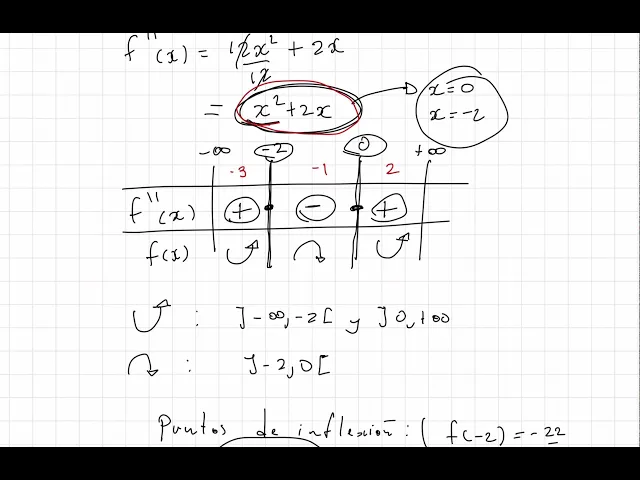 f''(x) = 12x²/12 + 2x
= x²+2x
x=0
x=-2
-∞ -2 0 +∞
-3 -1 2
f''(x) + - +
f(x)
: ]-∞,-2[ y ]0,+∞
: ]-2,0[
Puntos de inflexión: ( f(-2) = -22